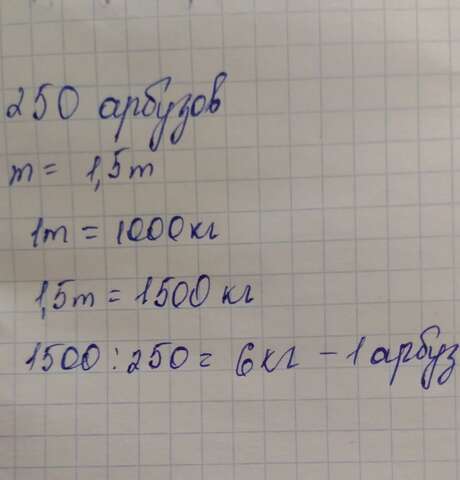 250 арбузов
m = 1,5m
1m = 1000кг
1,5m = 1500 кг
1500 : 250 = 6кг - 1 арбуз